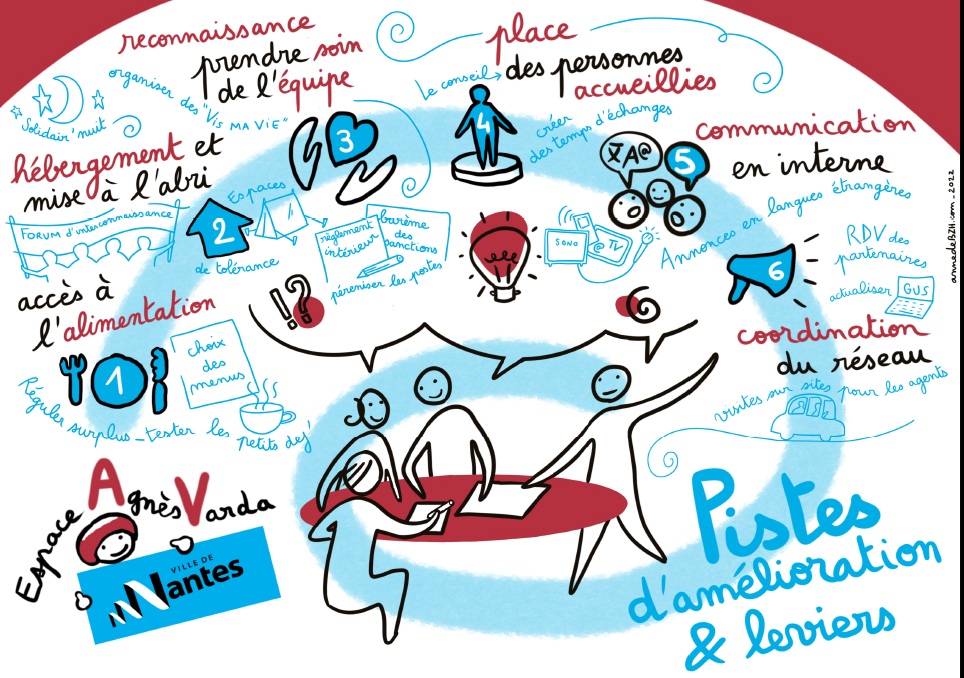 reconnaissance
prendre soin
de l'équipe
organiser des "VIS MA VIE"
3
place
des personnes
accueillies
Le conseil
4
créer
des temps d'échanges
communication
en interne
5
Annonces en langues étrangères
SONO
TV
Solidair'nuit
hébergement et
mise à l'abri
2
Espaces
de tolérance
FORUM d'interconnaissance
règlement
intérieur
barème
des
sanctions
pérenniser les postes
!?
accès à
l'alimentation
1
choix
des
menus
Réguler surplus_tester les petits dej'
6
RDV des
partenaires
actualiser GUS
coordination
du réseau
visites sur sites pour les agents
annedeBZH.com_2022
Espace Agnès Varda
VILLE DE
Nantes
Pistes
d'amélioration
& leviers